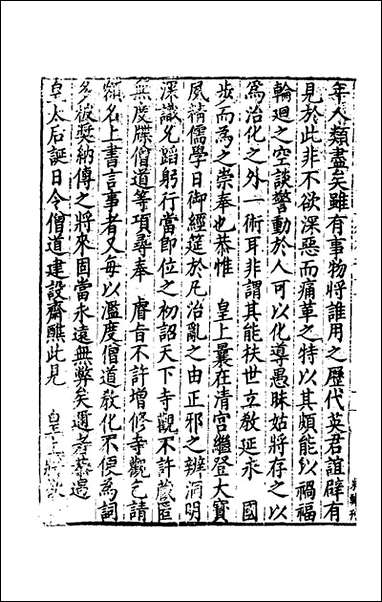 年人類盡矣雖有事物將誰用之歷代英君誼辟有
見於此非不欲深惡而痛革之特以其頗能以禍福
輪迴之空談警動於人可以化導愚昧姑將存之以
爲治化之外一術耳非謂其能扶世立教延永　國
步而為之崇奉也恭惟　皇上曩在清宮繼登大寶
夙精儒學日御經筵於凡治亂之由正邪之辨洞明
深識允蹈躬行當即位之初詔天下寺觀不許藏匿
無度牒僧道等項尋奉　膚旨不許增修寺觀乞請
額名上書言事者又每以濫度僧道敎化不便為詞
多被奨納傳之將來固當永遠無弊矣邇者恭遇
皇太后誕日令僧道建設齋醮此見　皇上